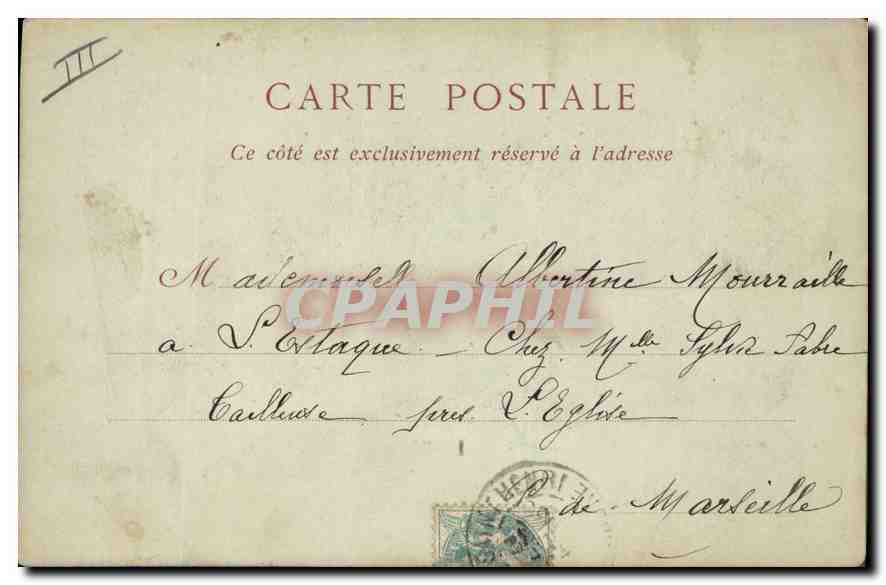 III
CARTE POSTALE
Ce côté est exclusivement réservé à l'adresse
Mademoiselle Albertine Mourraille
CPAPHIL
a L'Estaque - Chez Mlle Sylvie Fabre
Tailleuse pres L'Eglise
de Marseille
HENRI